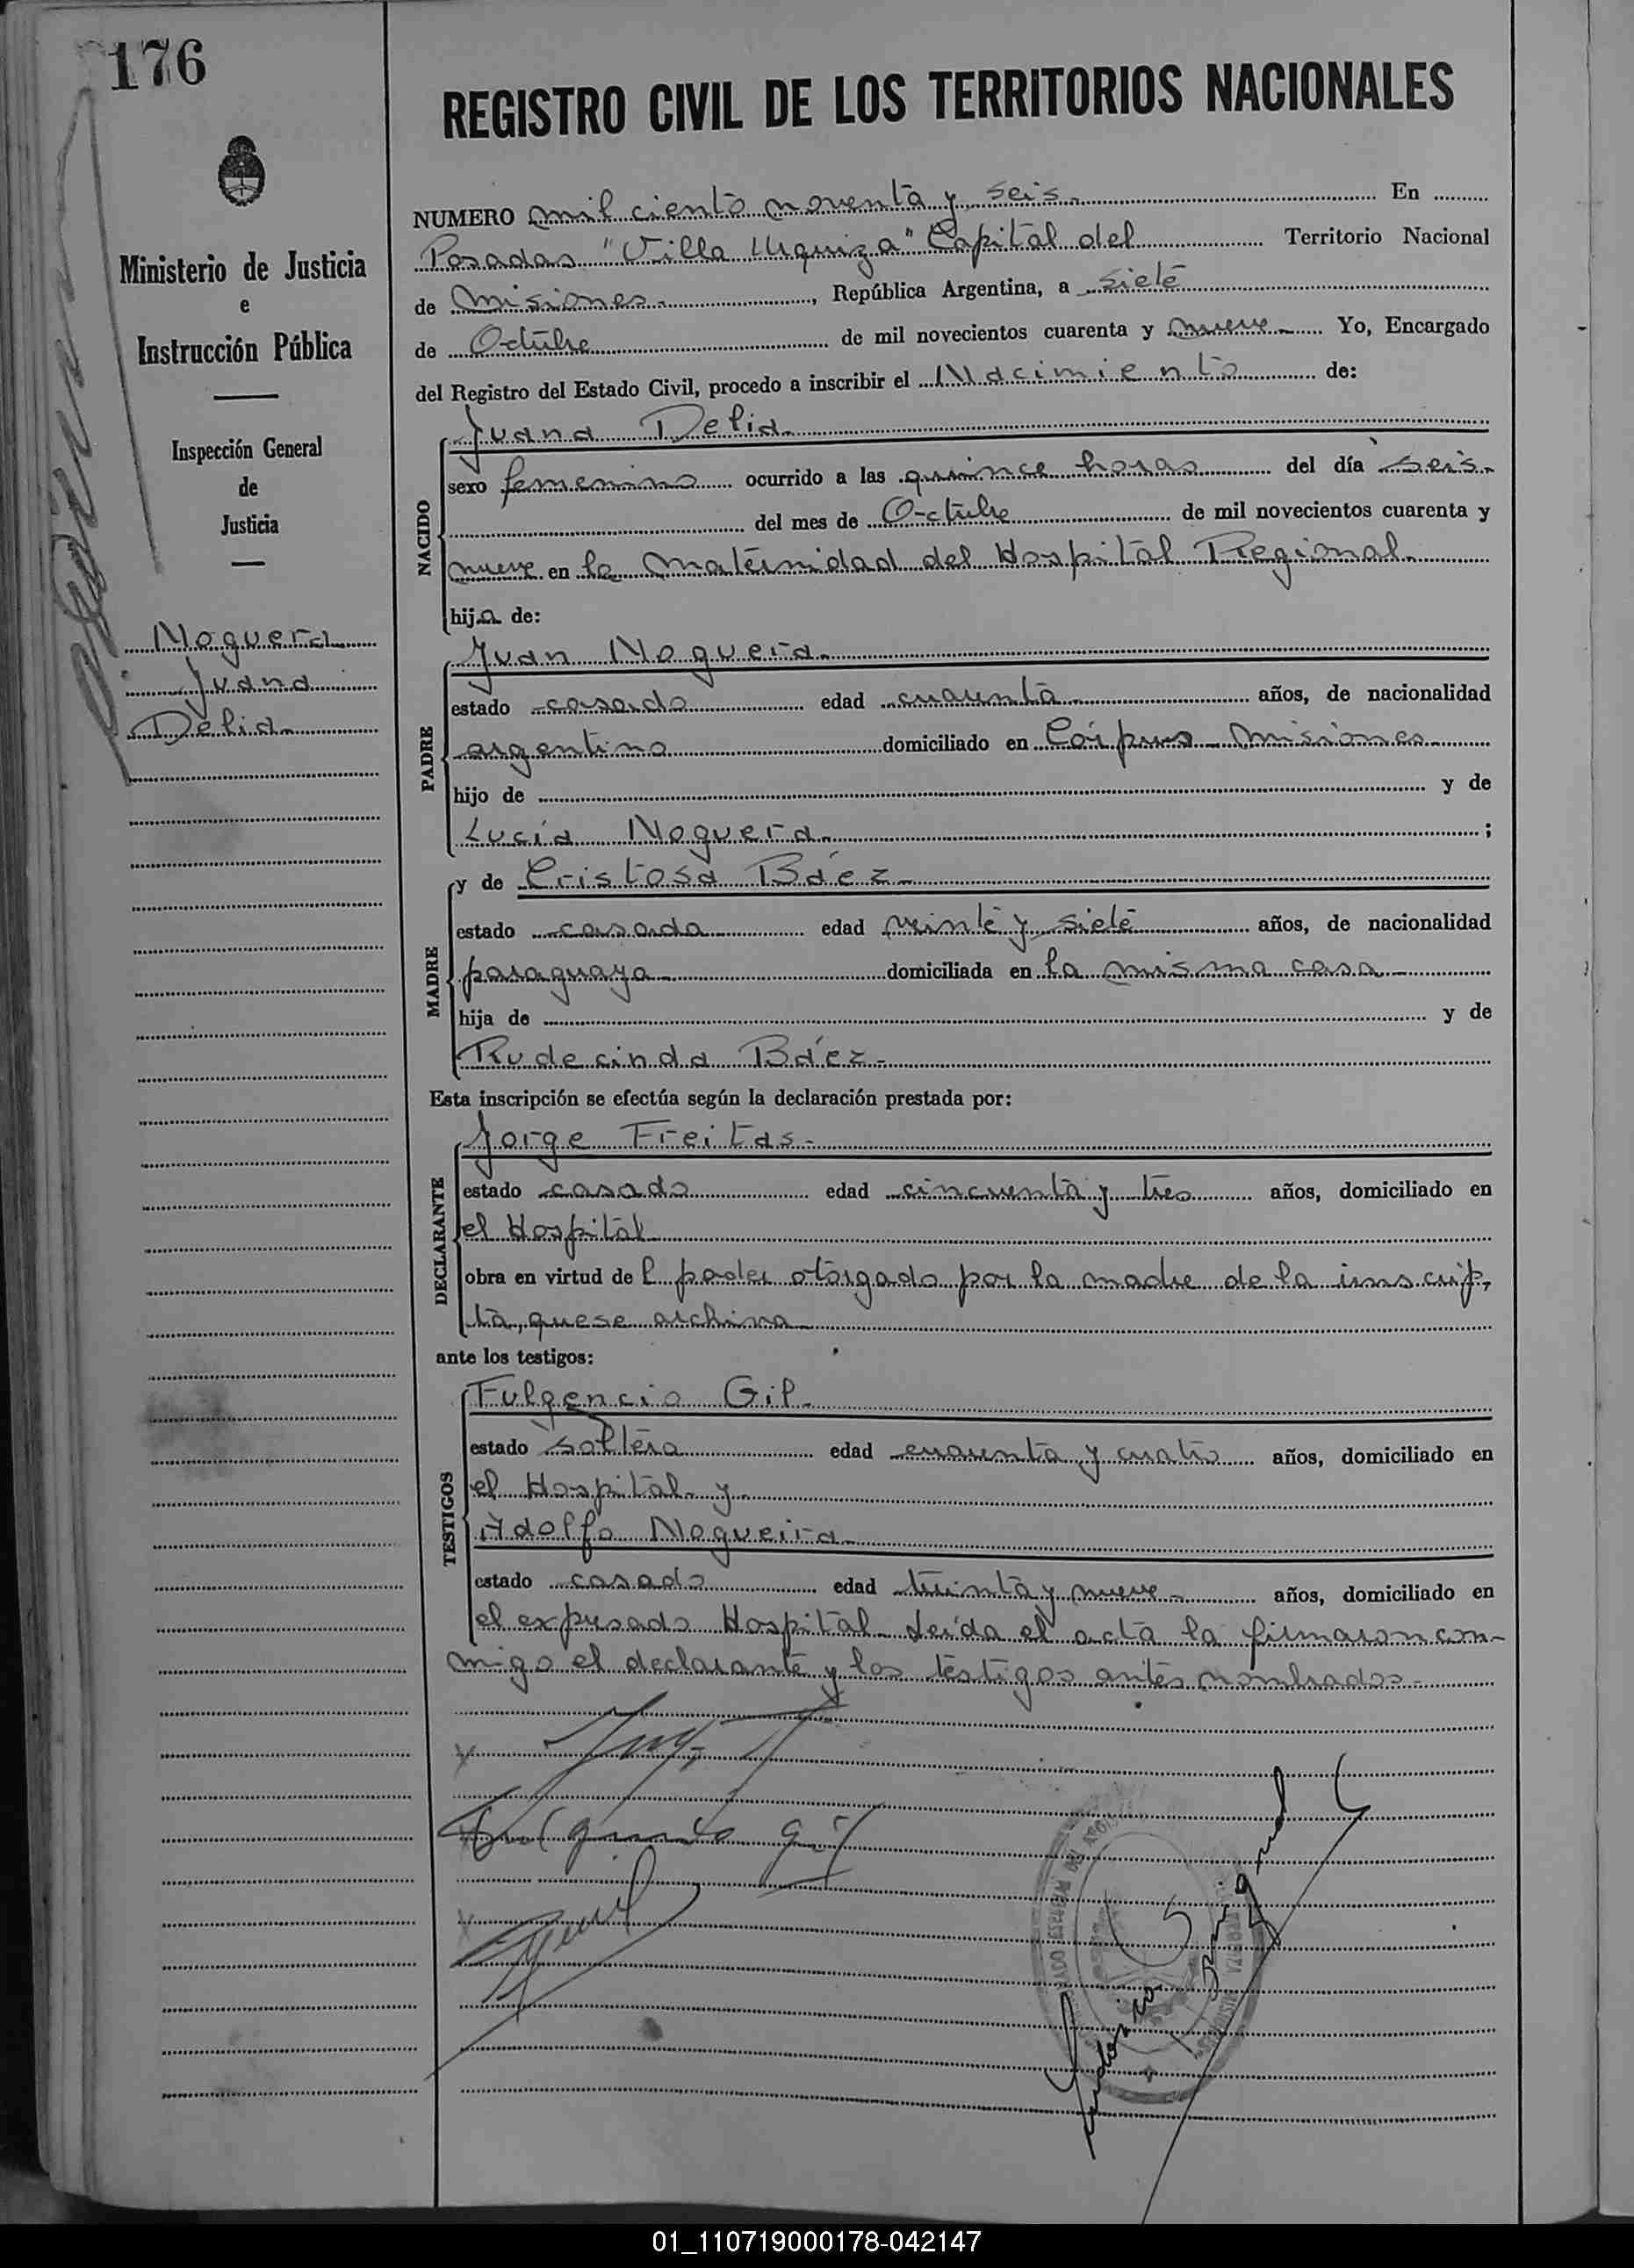 176
REGISTRO CIVIL DE LOS TERRITORIOS NACIONALES
Ministerio de Justicia
e
Instrucción Pública
Inspección General
de
Justicia
Noguera
Juana
Delia
NUMERO mil ciento noventa y seis En
Posadas "Villa Urquiza" Capital del Territorio Nacional
de Misiones, República Argentina, a siete
de Octubre de mil novecientos cuarenta y nueve Yo, Encargado
del Registro del Estado Civil, procedo a inscribir el Nacimiento de:
NACIDO
Juana Delia
sexo femenino ocurrido a las quince horas del día seis
del mes de Octubre de mil novecientos cuarenta y
nueve en la Maternidad del Hospital Regional
hija de:
PADRE
Juan Noguera
estado casado edad cuarenta años, de nacionalidad
argentino domiciliado en Córpus - Misiones
hijo de y de
Lucía Noguera ;
MADRE
y de Cristosa Báez
estado casada edad veinte y siete años, de nacionalidad
paraguaya domiciliada en la misma casa
hija de y de
Rudecinda Báez
Esta inscripción se efectúa según la declaración prestada por:
DECLARANTE
Jorge Freitas
estado casado edad cincuenta y tres años, domiciliado en
el Hospital
obra en virtud de l poder otorgado por la madre de la inscrip,
ta, que se archiva
ante los testigos:
TESTIGOS
Fulgencio Gil
estado soltero edad cuarenta y cuatro años, domiciliado en
el Hospital y
Adolfo Nogueira
estado casado edad treinta y nueve años, domiciliado en
el expresado Hospital. Leída el acta la firmaron con-
migo el declarante y los testigos antes nombrados
01_110719000178-042147